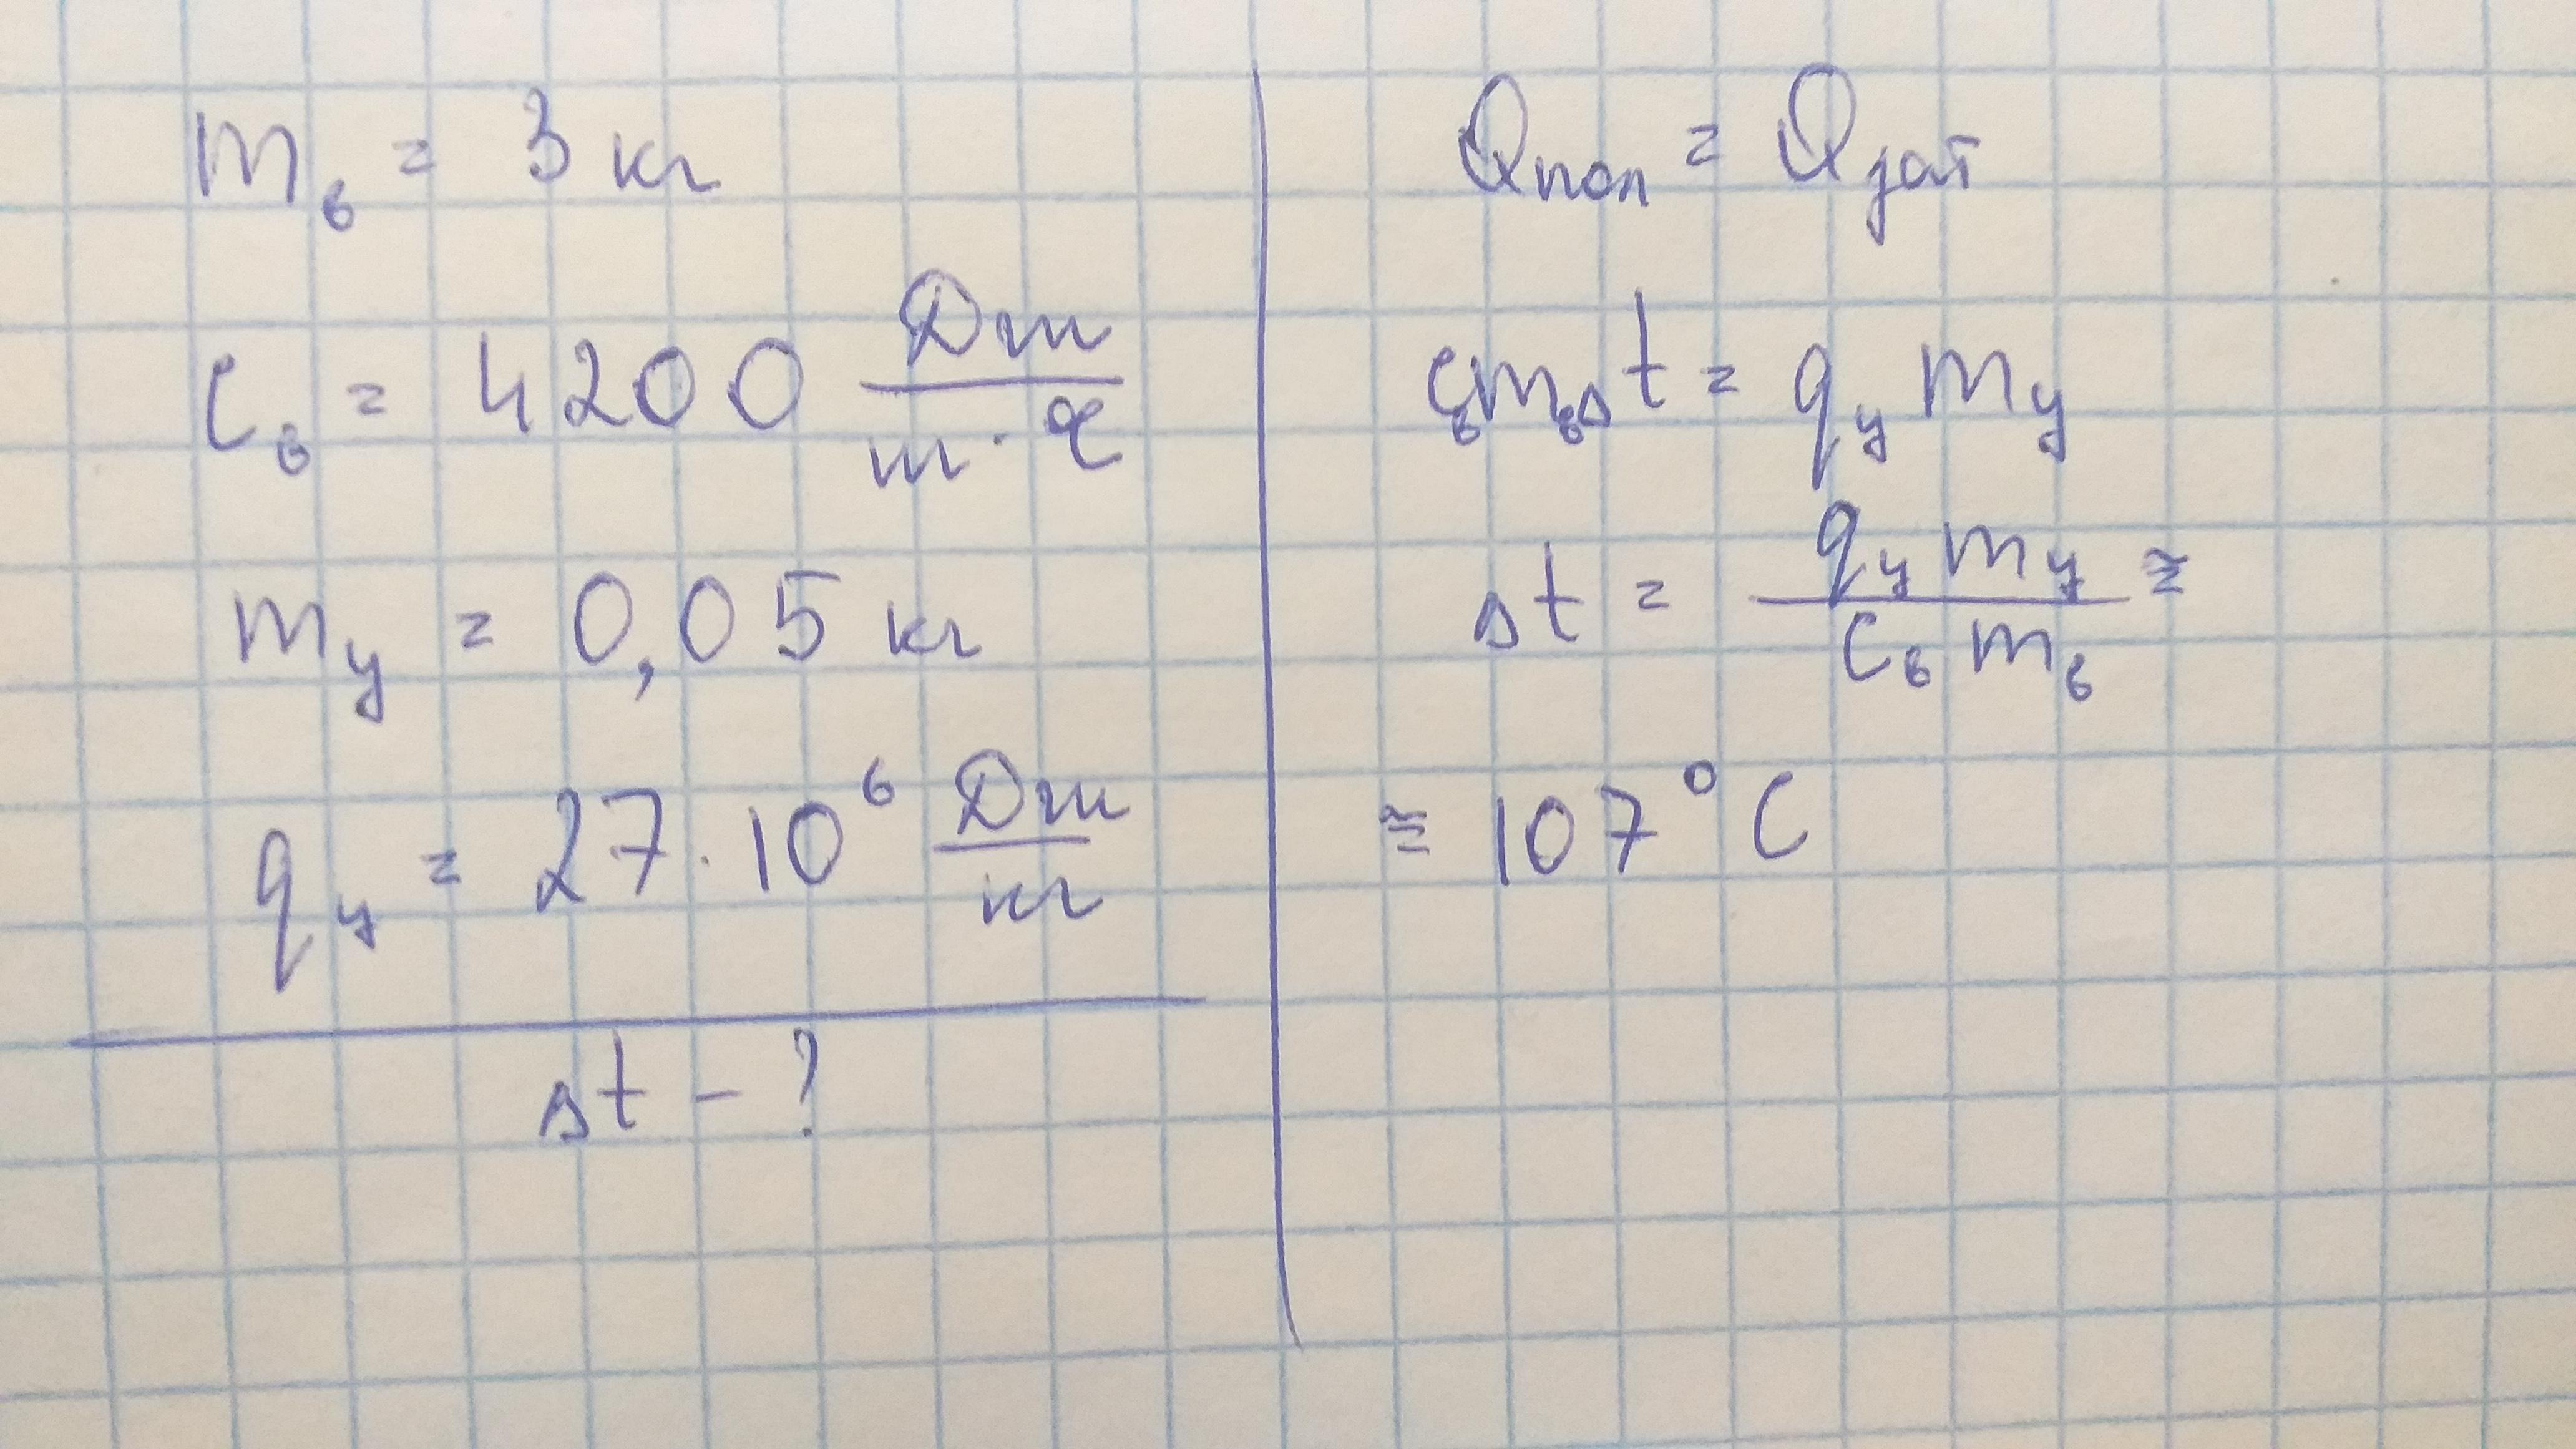 m_в = 3 кг
c_в = 4200 Дж/кг·°C
m_у = 0,05 кг
q_у = 27·10⁶ Дж/кг
Δt – ?
Qпол = Qзат
c_в m_в Δt = q_у m_у
Δt = q_у m_у / c_в m_в ≅
≅ 107°C